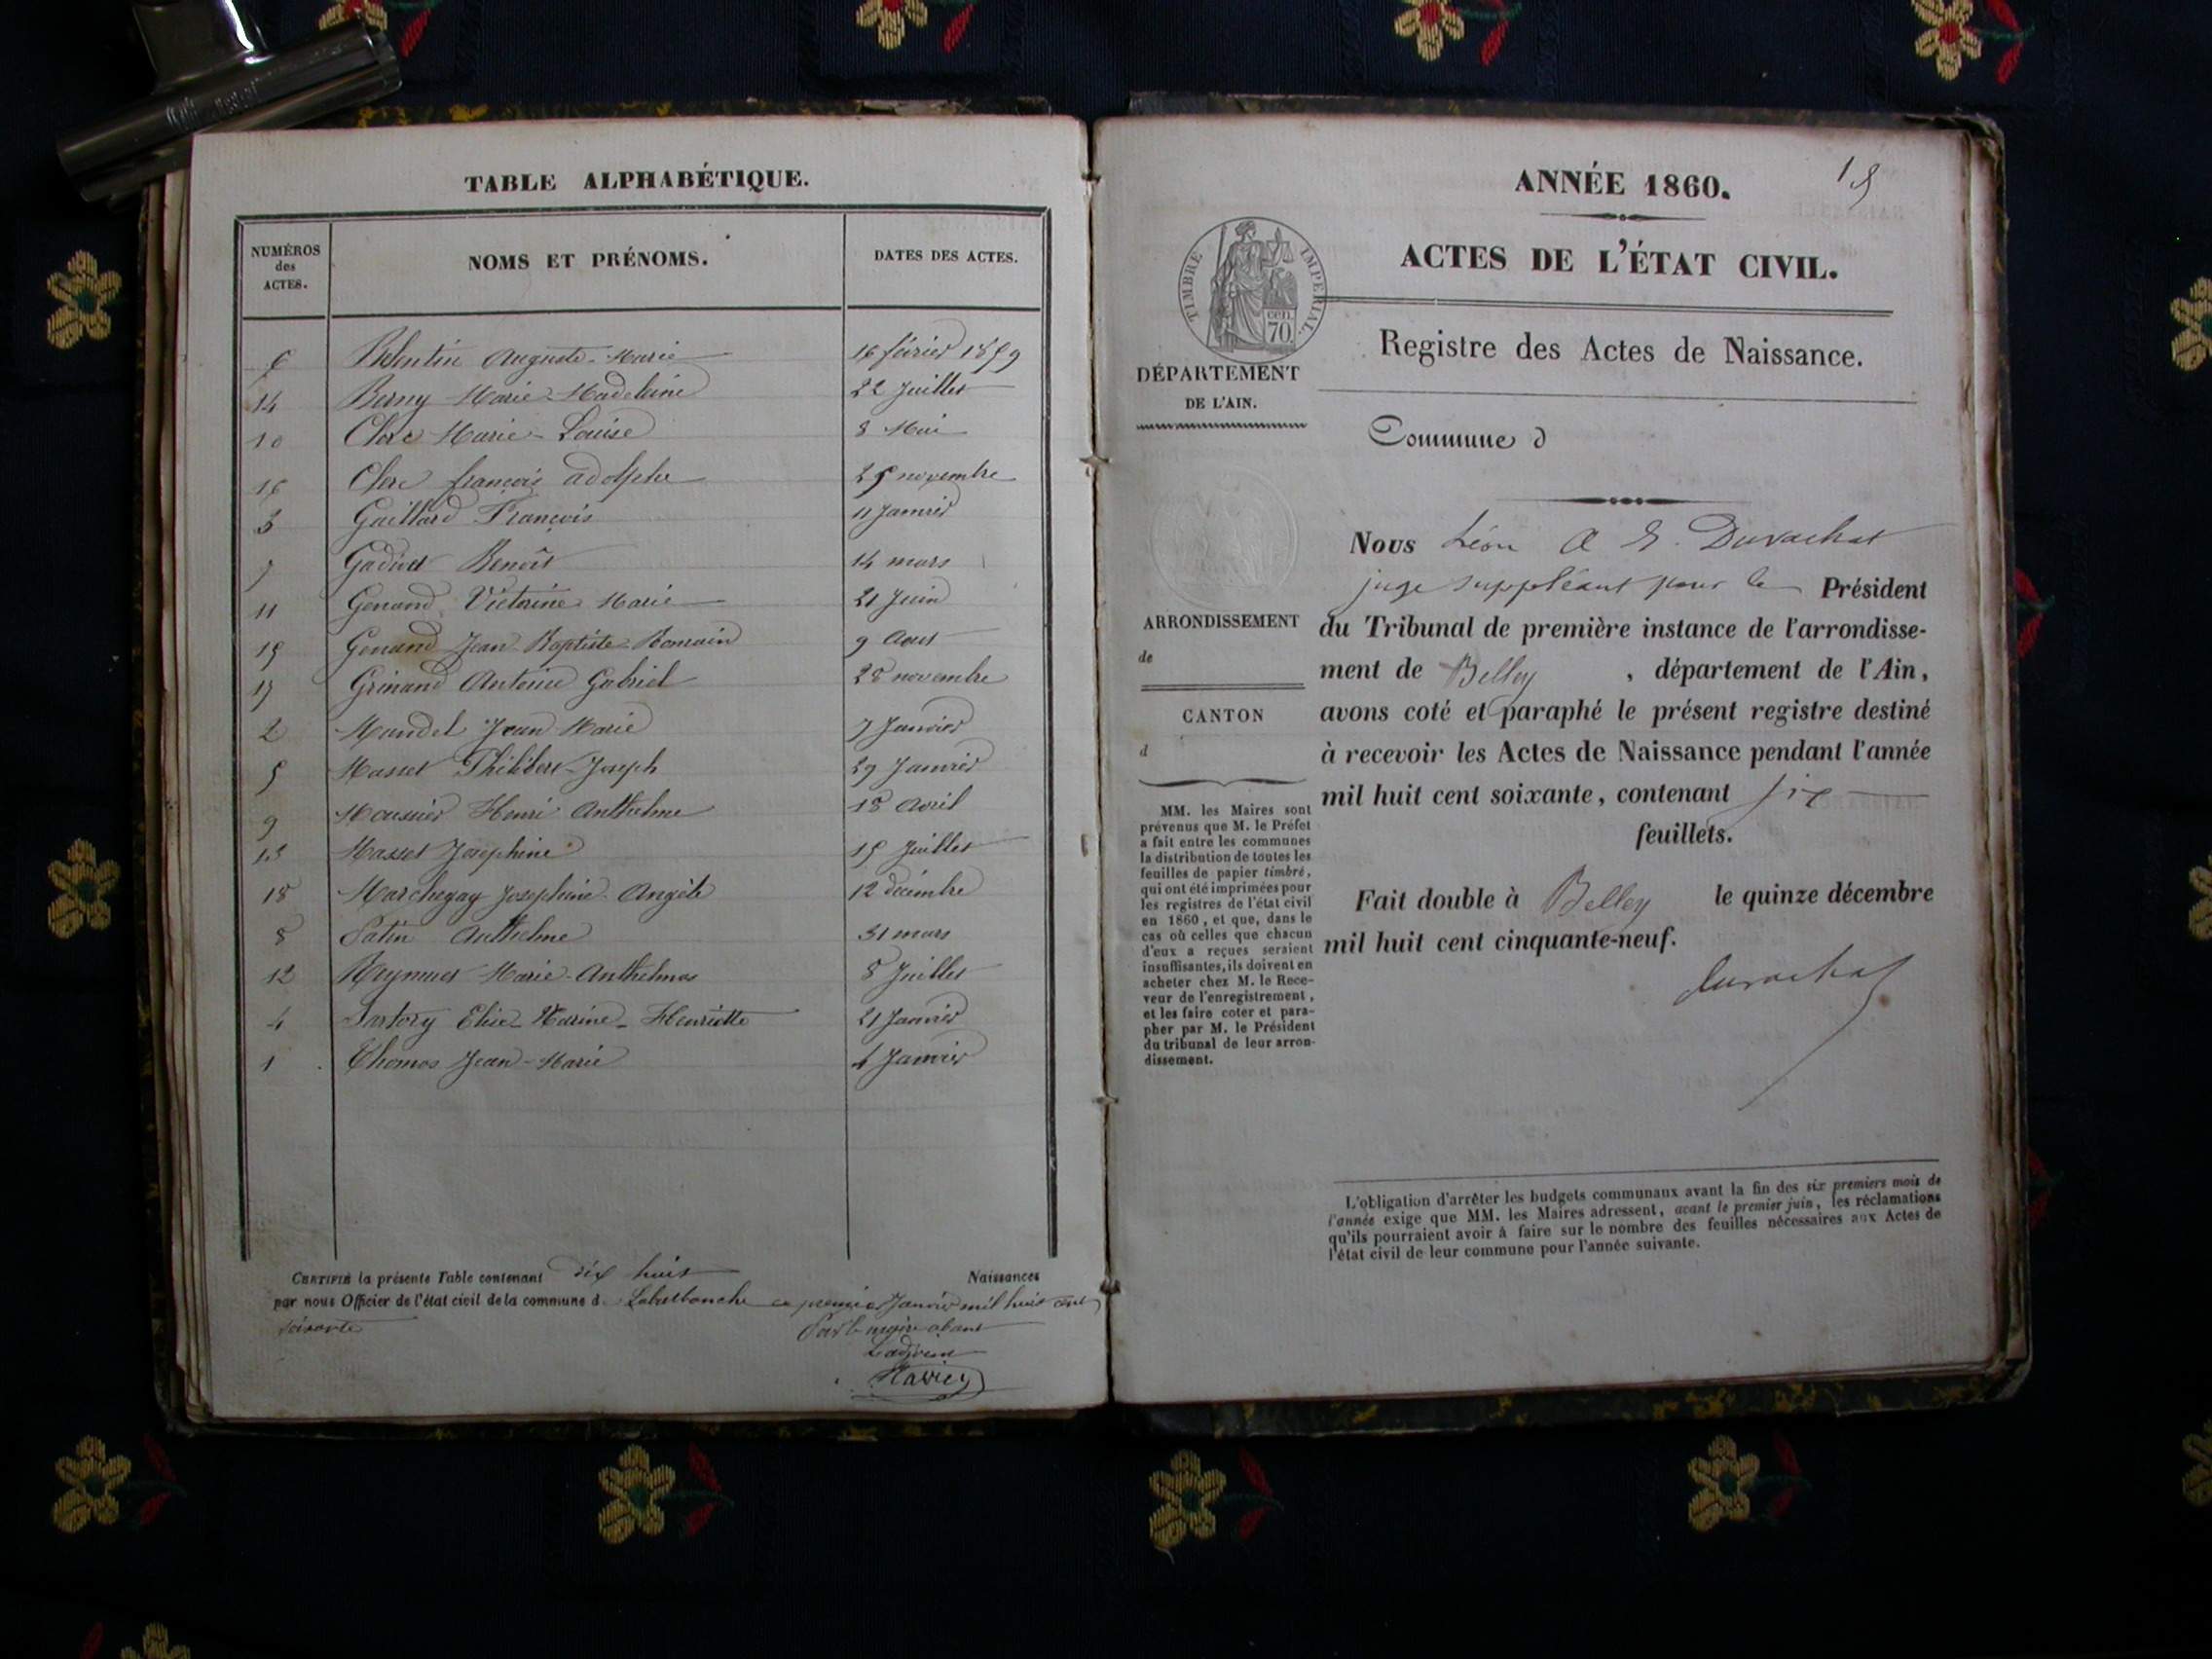 TABLE ALPHABÉTIQUE.
NUMÉROS des ACTES. NOMS ET PRÉNOMS. DATES DES ACTES.
6 Auguste-Marie 16 février 1859
14 Berny Marie-Madeleine 22 Juillet
10 Clerc Marie-Louise 8 Mai
16 Clerc françois adolphe 25 novembre
3 Gaillard François 11 Janvier
7 Benoît 14 mars
11 Genand Victorine Marie 21 Juin
15 Genand Jean-Baptiste-Romain 9 Aout
17 Grinand Antoine Gabriel 28 novembre
2 Mandel Jean Marie 7 Janvier
5 Masset Philibert-Joseph 29 Janvier
9 Henri Anthelme 18 Avril
13 Masset Josephine 15 Juillet
18 Marchegay Josephine-Angèle 12 décembre
8 Patin Anthelme 31 mars
12 Marie-Anthelmos 8 Juillet
4 Sartory Elise-Marine-Henriette 21 Janvier
1 Thomas Jean-Marie 4 Janvier
CERTIFIÉ la présente Table contenant dix huit Naissances
par nous Officier de l'état civil de la commune d ce premier Janvier mil huit cent
soixante
Par le maire absent
L'adjoint
ANNÉE 1860.
ACTES DE L'ÉTAT CIVIL.
TIMBRE IMPÉRIAL.
cen. 70.
Registre des Actes de Naissance.
DÉPARTEMENT
DE L'AIN.
Commune d
Nous Léon A E. Duvachat
juge suppléant pour le Président
du Tribunal de première instance de l'arrondisse-
ment de Belley , département de l'Ain,
avons coté et paraphé le présent registre destiné
à recevoir les Actes de Naissance pendant l'année
mil huit cent soixante, contenant six
feuillets.
Fait double à Belley le quinze décembre
mil huit cent cinquante-neuf.
Duvachat
ARRONDISSEMENT
de
CANTON
d
MM. les Maires sont
prévenus que M. le Préfet
a fait entre les communes
la distribution de toutes les
feuilles de papier timbré,
qui ont été imprimées pour
les registres de l'état civil
en 1860, et que, dans le
cas où celles que chacun
d'eux a reçues seraient
insuffisantes, ils doivent en
acheter chez M. le Rece-
veur de l'enregistrement,
et les faire coter et para-
pher par M. le Président
du tribunal de leur arron-
dissement.
L'obligation d'arrêter les budgets communaux avant la fin des six premiers mois de
l'année exige que MM. les Maires adressent, avant le premier juin, les réclamations
qu'ils pourraient avoir à faire sur le nombre des feuilles nécessaires aux Actes de
l'état civil de leur commune pour l'année suivante.